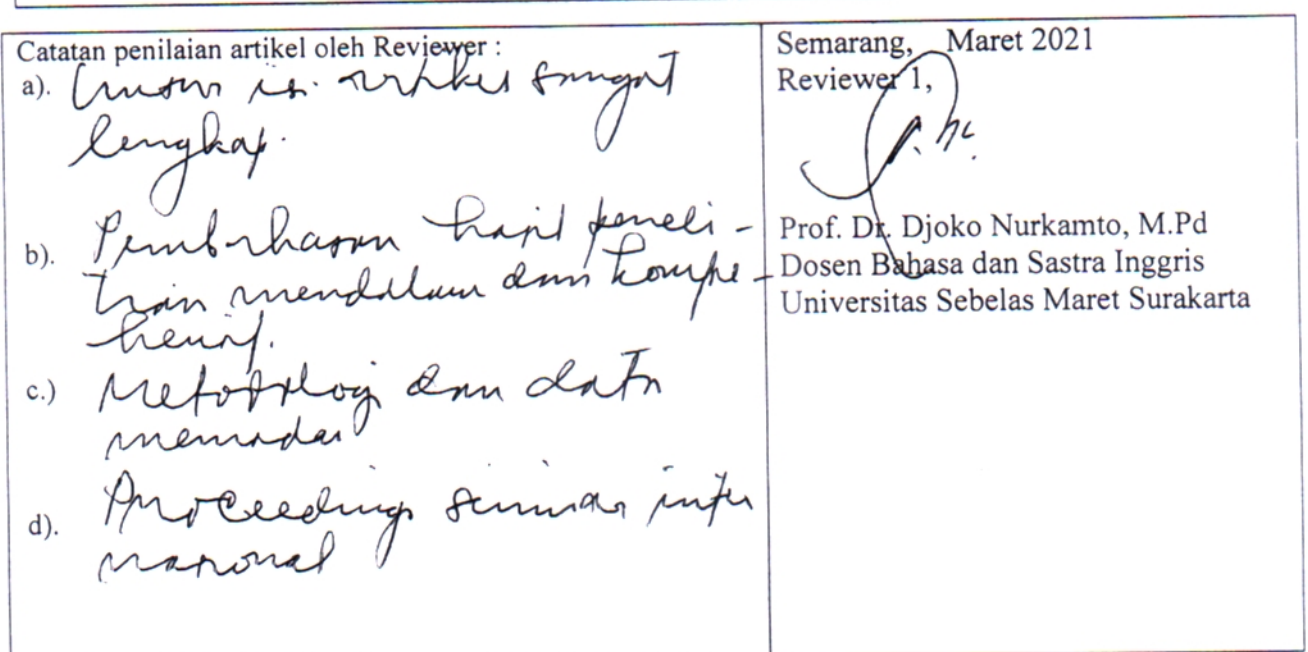 Catatan penilaian artikel oleh Reviewer :
a). Unsur isi artikel sangat
lengkap.
b). Pembahasan hasil peneli-
tian mendalam dan kompre-
hensif.
c.) Metodologi dan data
memadai
d). Proceeding seminar inter
nasional
Semarang, Maret 2021
Reviewer 1,
Prof. Dr. Djoko Nurkamto, M.Pd
Dosen Bahasa dan Sastra Inggris
Universitas Sebelas Maret Surakarta